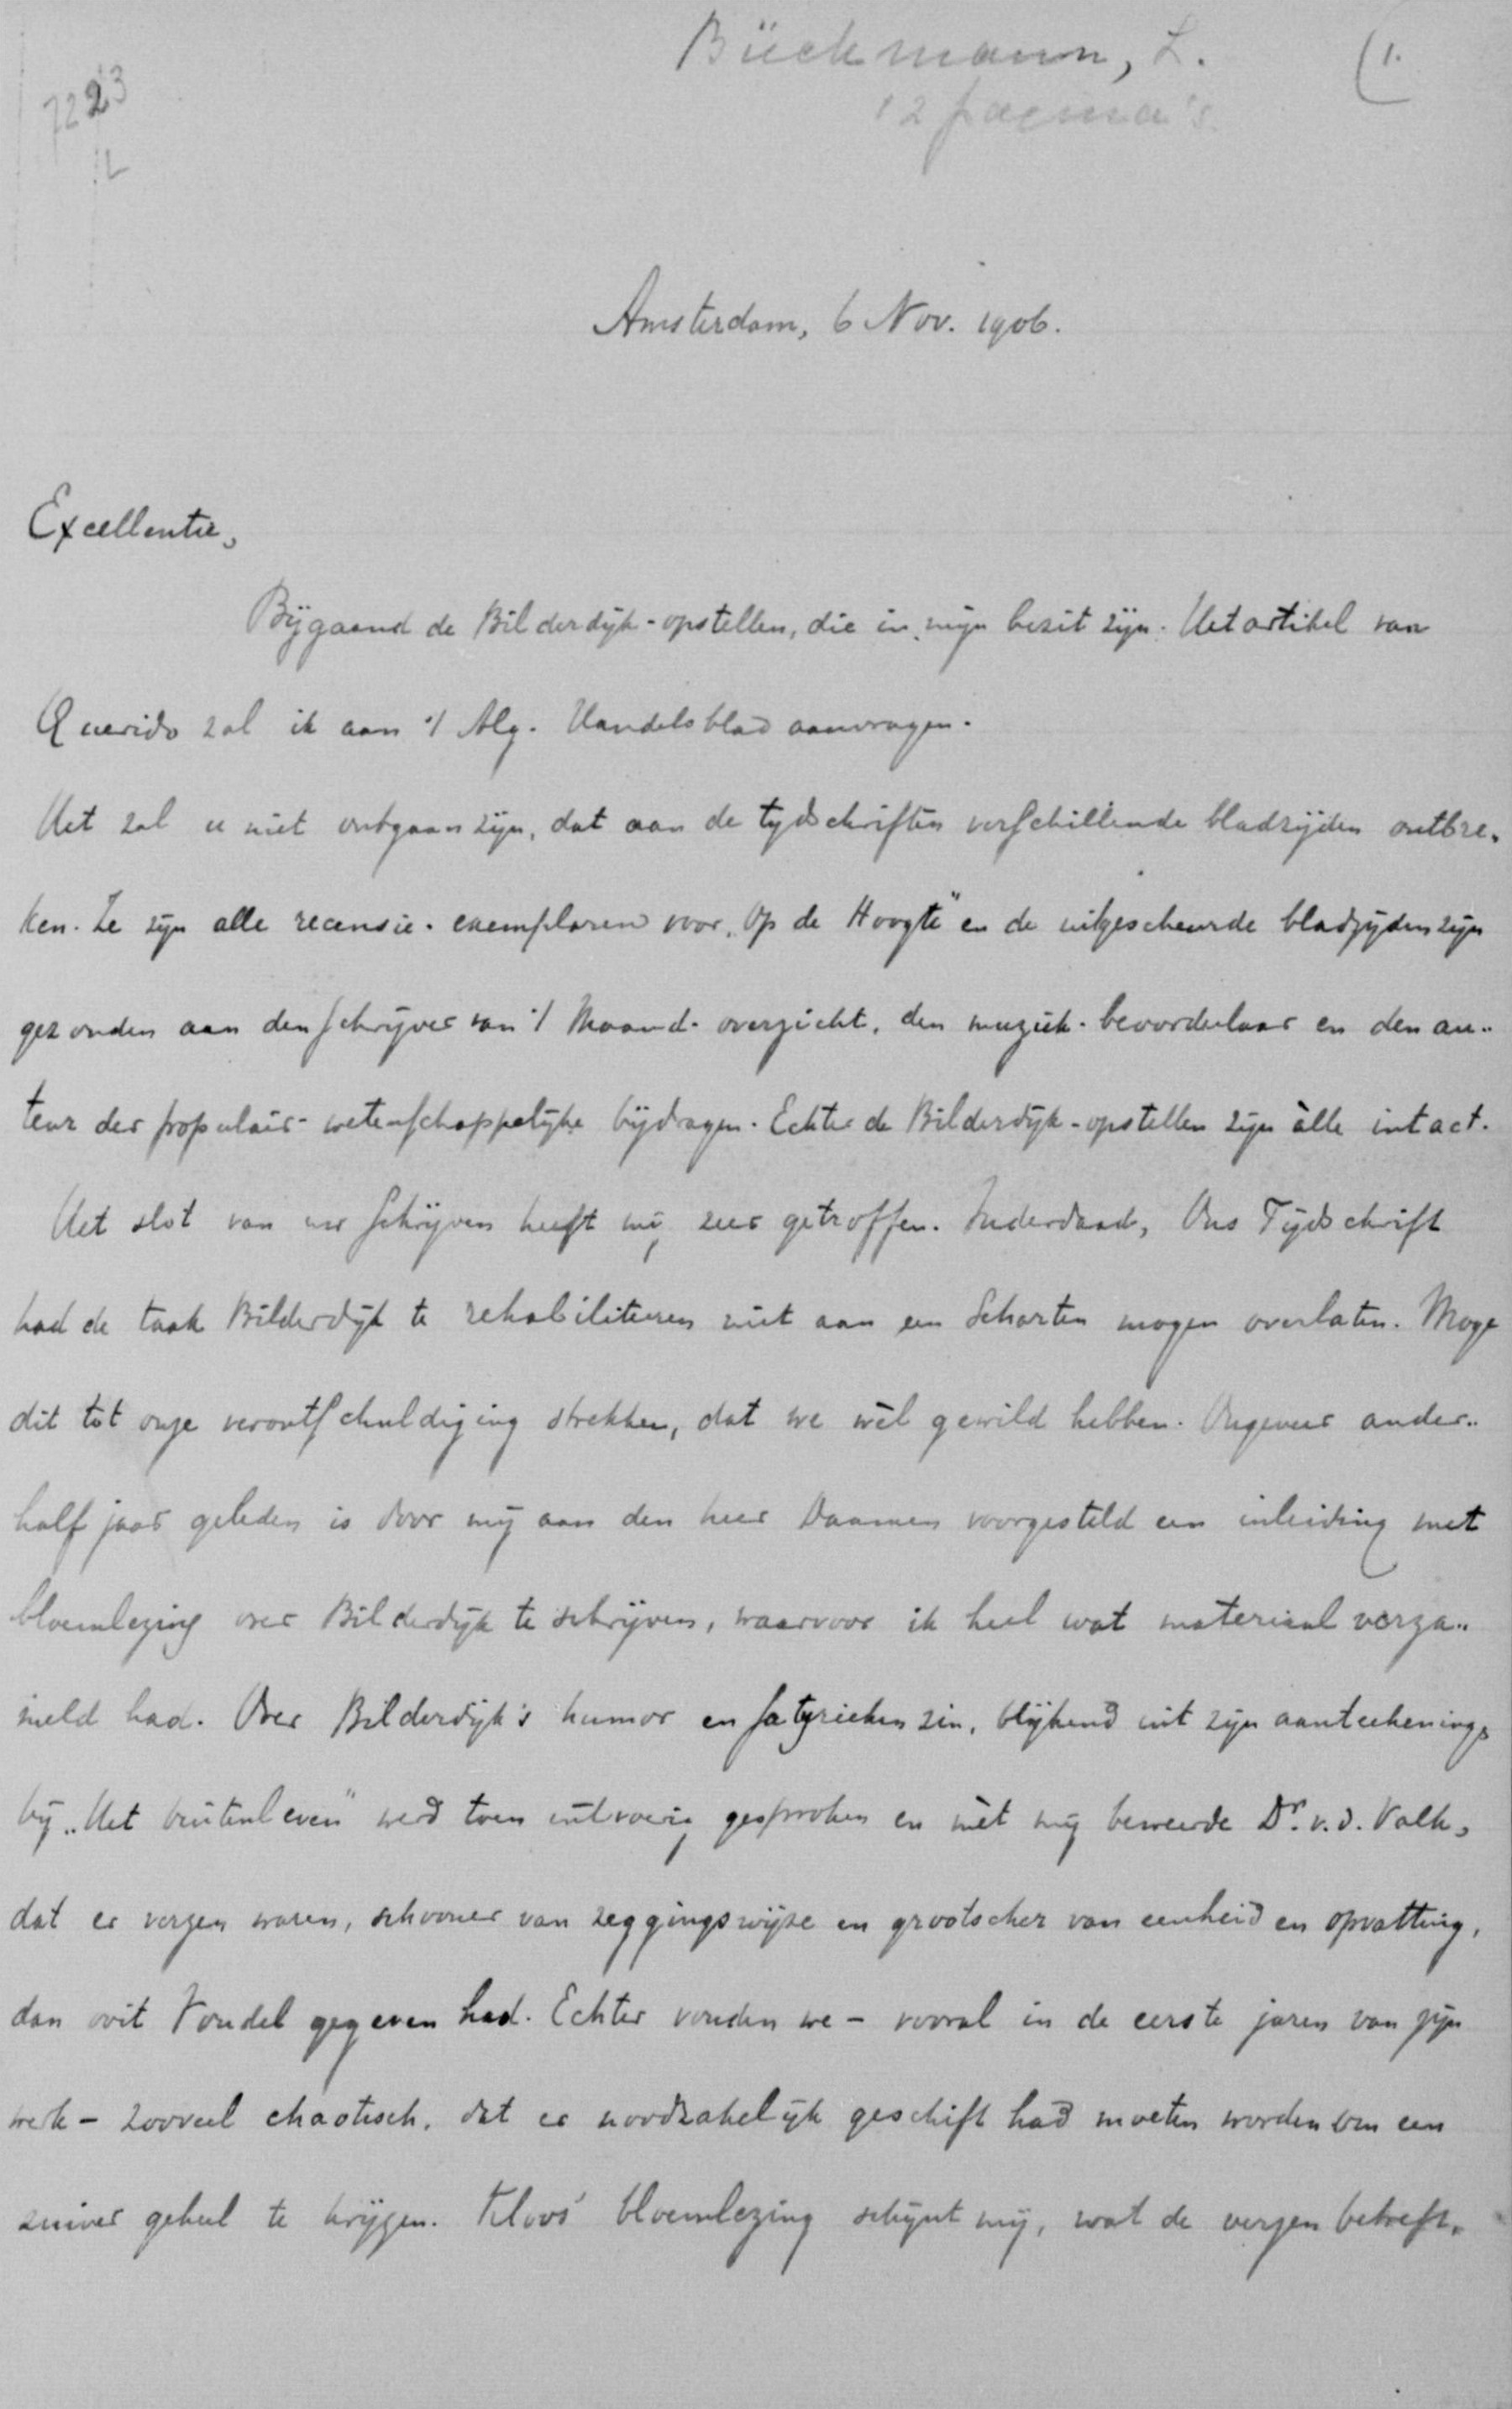 Bückmann, L.
(1.
12 pagina's
7223
Amsterdam, 6 Nov. 1906.
Excellentie,
Bijgaand de Bilderdijk-opstellen, die in mijn bezit zijn. Het artikel van
Querido zal ik aan 't Alg. Handelsblad aanvragen.
Het zal u niet ontgaan zijn, dat aan de tijdschriften verschillende bladzijden ontbre-
ken. Ze zijn alle recensie-exemplaren voor „Op de Hoogte" en de uitgescheurde bladzijden zijn
gezonden aan den schrijver van 't Maand-overzicht, den muziek-beoordeelaar en den au-
teur der populair-wetenschappelijke bijdragen. Echter de Bilderdijk-opstellen zijn àlle intact.
Het slot van uw schrijven heeft mij zeer getroffen. Inderdaad, Ons Tijdschrift
had de taak Bilderdijk te rehabiliteeren niet aan een Scharten mogen overlaten. Moge
dit tot onze verontschuldiging strekken, dat we wèl gewild hebben. Ongeveer ander-
half jaar geleden is door mij aan den heer Daamen voorgesteld een inleiding met
bloemlezing over Bilderdijk te schrijven, waarvoor ik heel wat materiaal verza-
meld had. Over Bilderdijk's humor en satyrieken zin, blijkend uit zijn aanteekenings
bij „Het buitenleven" werd toen uitvoerig gesproken en mèt mij beweerde Dr. v. d. Valk,
dat er verzen waren, schooner van zeggingswijze en grootscher van eenheid en opvatting,
dan ooit Vondel gegeven had. Echter vonden we - vooral in de eerste jaren van zijn
werk - zooveel chaotisch, dat er noodzakelijk geschift had moeten worden om een
zuiver geheel te krijgen. Kloos' bloemlezing schijnt mij, wat de verzen betreft,